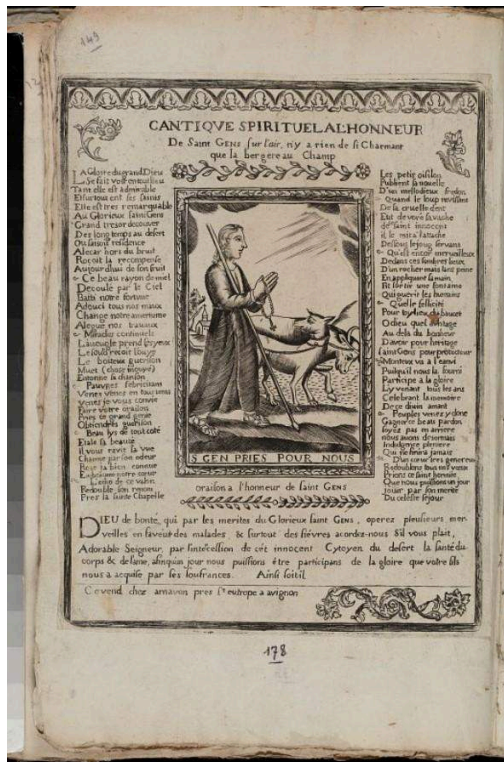 149
CANTIQVE SPIRITUEL AL'HONNEUR
De Saint GENS sur l'air, n'y a rien de si Charmant
que la bergere au Champ
LA Gloire du grand Dieu
Se fait voir en tout lieu
Tant elle est admirable
Et surtout en ses saints
Elle est tres remarquable
Au Glorieux saint Gens
Grand tresor decouver
Des long temps au desert
Ou faisant residence
Alecar hors du bruit
Reçoit la recompense
Aujourdhui de son fruit
Ce beau rayon de miel
Decoule par le Ciel
Batit notre fortune
Adouci tous nos maux
Change notre amertume
Alegue nos travaux
Miracles continuels
L'aveugle prend
Le sourd recoit l'ouye
Le boiteux guerison
Muet
Entonne sa chanson
Pauvres febricitans
Venez venez en tout tems
Venez je vous convie
Faire votre oraison
Obtiendrés guerison
Beau lys de tout coté
Etale sa beauté
Il vous ravit la vue
Charme par son odeur
L'echo de ce valon
Redouble son renom
Prez la sainte Chapelle
Les petis oisillons
Publient sa nouvelle
D'un melodieux fredon
Quand le loup ravissant
De sa cruelle dent
Eut devoré sa vache
De saint innocent
il le mit a l'attache
Dessous le joug servans
Qu'est encor merveilleux
Dedans ces sombres lieux
D'un rocher
En appliquant sa main
Fit sortir une fontaine
Qui guerit les humains
Quelle felicité
Pour toy
O dieu quel avantage
Au dela du bonheur
D'avoir pour heritage
saint Gens pour protecteur
Monteux va a l'envi
Puisqu'il nous la fourni
Participe a la gloire
Ly venant tous les ans
Celebrant la memoire
De ce divin amant
Peuples venez y donc
Gagner ce beau pardon
soyez pas en arriere
nous avons desormais
Indulgence pleniere
Qui ne finira jamais
D'un cœur tres genereux
Redoublons tous nos vœux
Prions ce saint hermite
Que nous puissions un jour
jouir par son merite
Du celeste sejour
S GEN PRIES POUR NOUS
oraison a l'honneur de saint GENS
DIEU de bonte, qui par les merites du Glorieux saint GENS, operez plusieurs mer
veilles en faveur des malades & surtout des fiévres acordez-nous s'il vous plait,
Adorable Seigneur, par l'intecession de cét innocent Cytoyen du desert la santé du
corps & de lame, afinqu'un jour nous puissions être participans de la gloire que votre fils
nous a acquise par ses soufrances. Ainsi soitil
Ce vend chez arnavon pres st eutrope a avignon
178